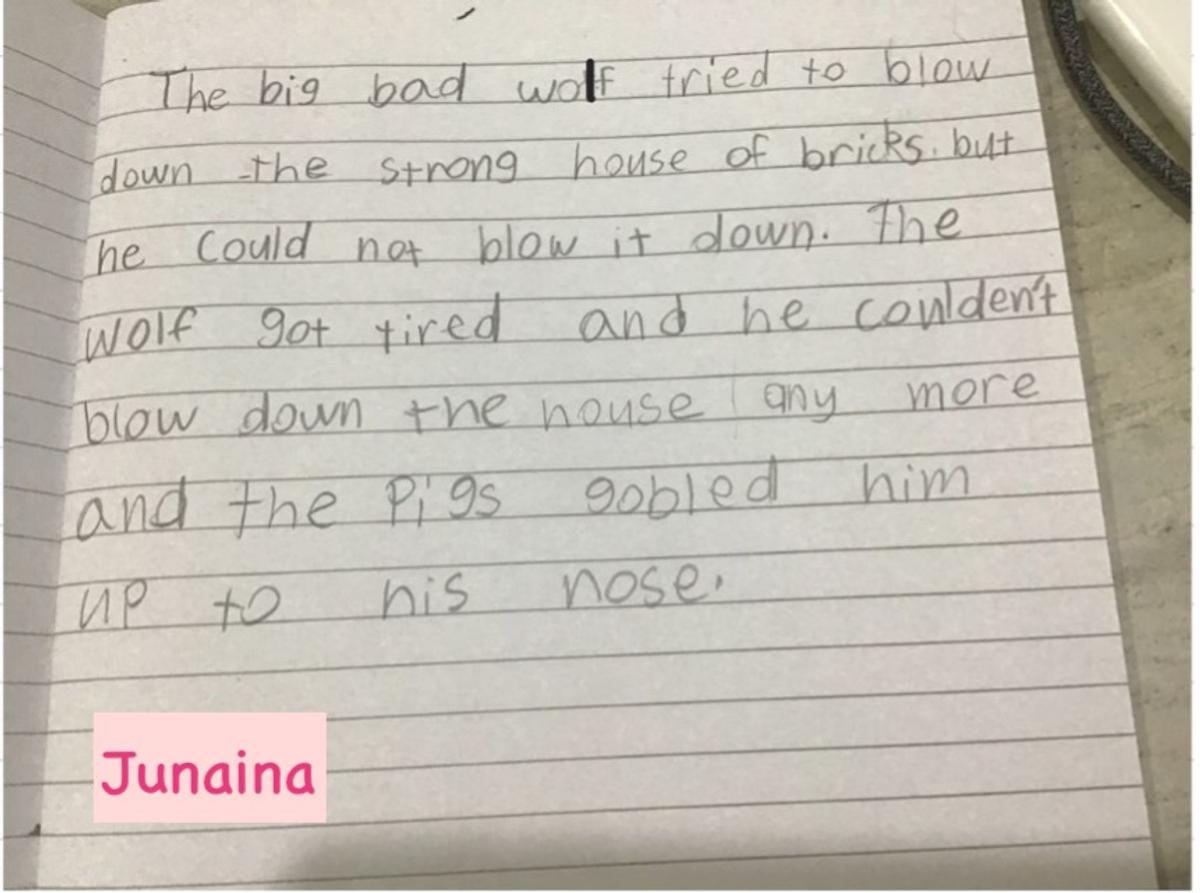 The big bad wolf tried to blow
down the strong house of bricks. but
he could not blow it down. The
wolf got tired and he coulden't
blow down the house any more
and the Pigs gobled him
up to his nose.
Junaina